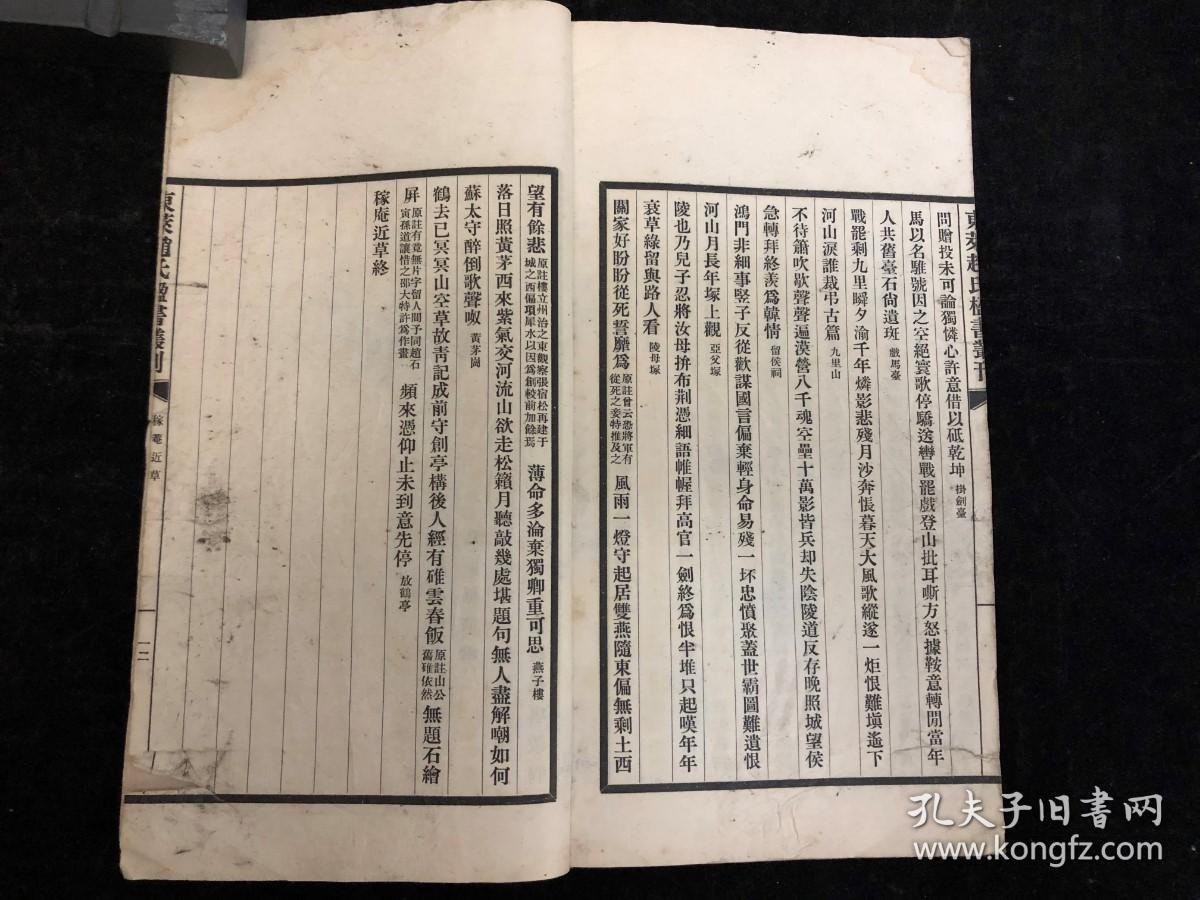 問贈投未可論獨憐心許意借以砥乾坤 掛劍臺
馬以名騅號因之空絕寰歌停驕送轡戰罷戲登山批耳嘶方怒據鞍意轉閒當年
人共舊臺石尙遺斑 戲馬臺
戰罷剩九里瞬夕渝千年燐影悲殘月沙奔悵暮天大風歌縱遂一炬恨難塡遙下
河山淚誰裁弔古篇 九里山
不待簫吹歇聲聲遍漠營八千魂空壘十萬影皆兵却失陰陵道反存晚照城望侯
急轉拜終羨爲韓情 留侯祠
鴻門非細事豎子反從歡謀國言偏棄輕身命易殘一坏忠憤聚蓋世霸圖難遺恨
河山月長年塚上觀 亞父塚
陵也乃兒子忍將汝母拚布荆憑細語帷幄拜高官一劍終爲恨半堆只起嘆年年
衰草綠留與路人看 陵母塚
關家好盼盼從死誓靡爲 原註曾云恐將軍有從死之妾特推及之 風雨一燈守起居雙燕隨東偏無剩土西
東萊趙氏楹書叢刊
望有餘悲 原註樓立州治之東觀察張宿松再建于城之西偏項犀水以因爲創較前加餘焉 薄命多淪棄獨卿重可思 燕子樓
落日照黃茅西來紫氣交河流山欲走松籟月聽敲幾處堪題句無人盡解嘲如何
蘇太守醉倒歌聲呶 黃茅崗
鶴去已冥冥山空草故靑記成前守創亭構後人經有碓雲舂飯 原註山公舊碓依然 無題石繪
屏 原註有竟無片字留人間予同趙石寅孫道讓惜之邵大特許爲作畫 頻來憑仰止未到意先停 放鶴亭
稼庵近草終
東萊趙氏楹書叢刊
稼庵近草
一二
孔夫子旧书网
www.kongfz.com